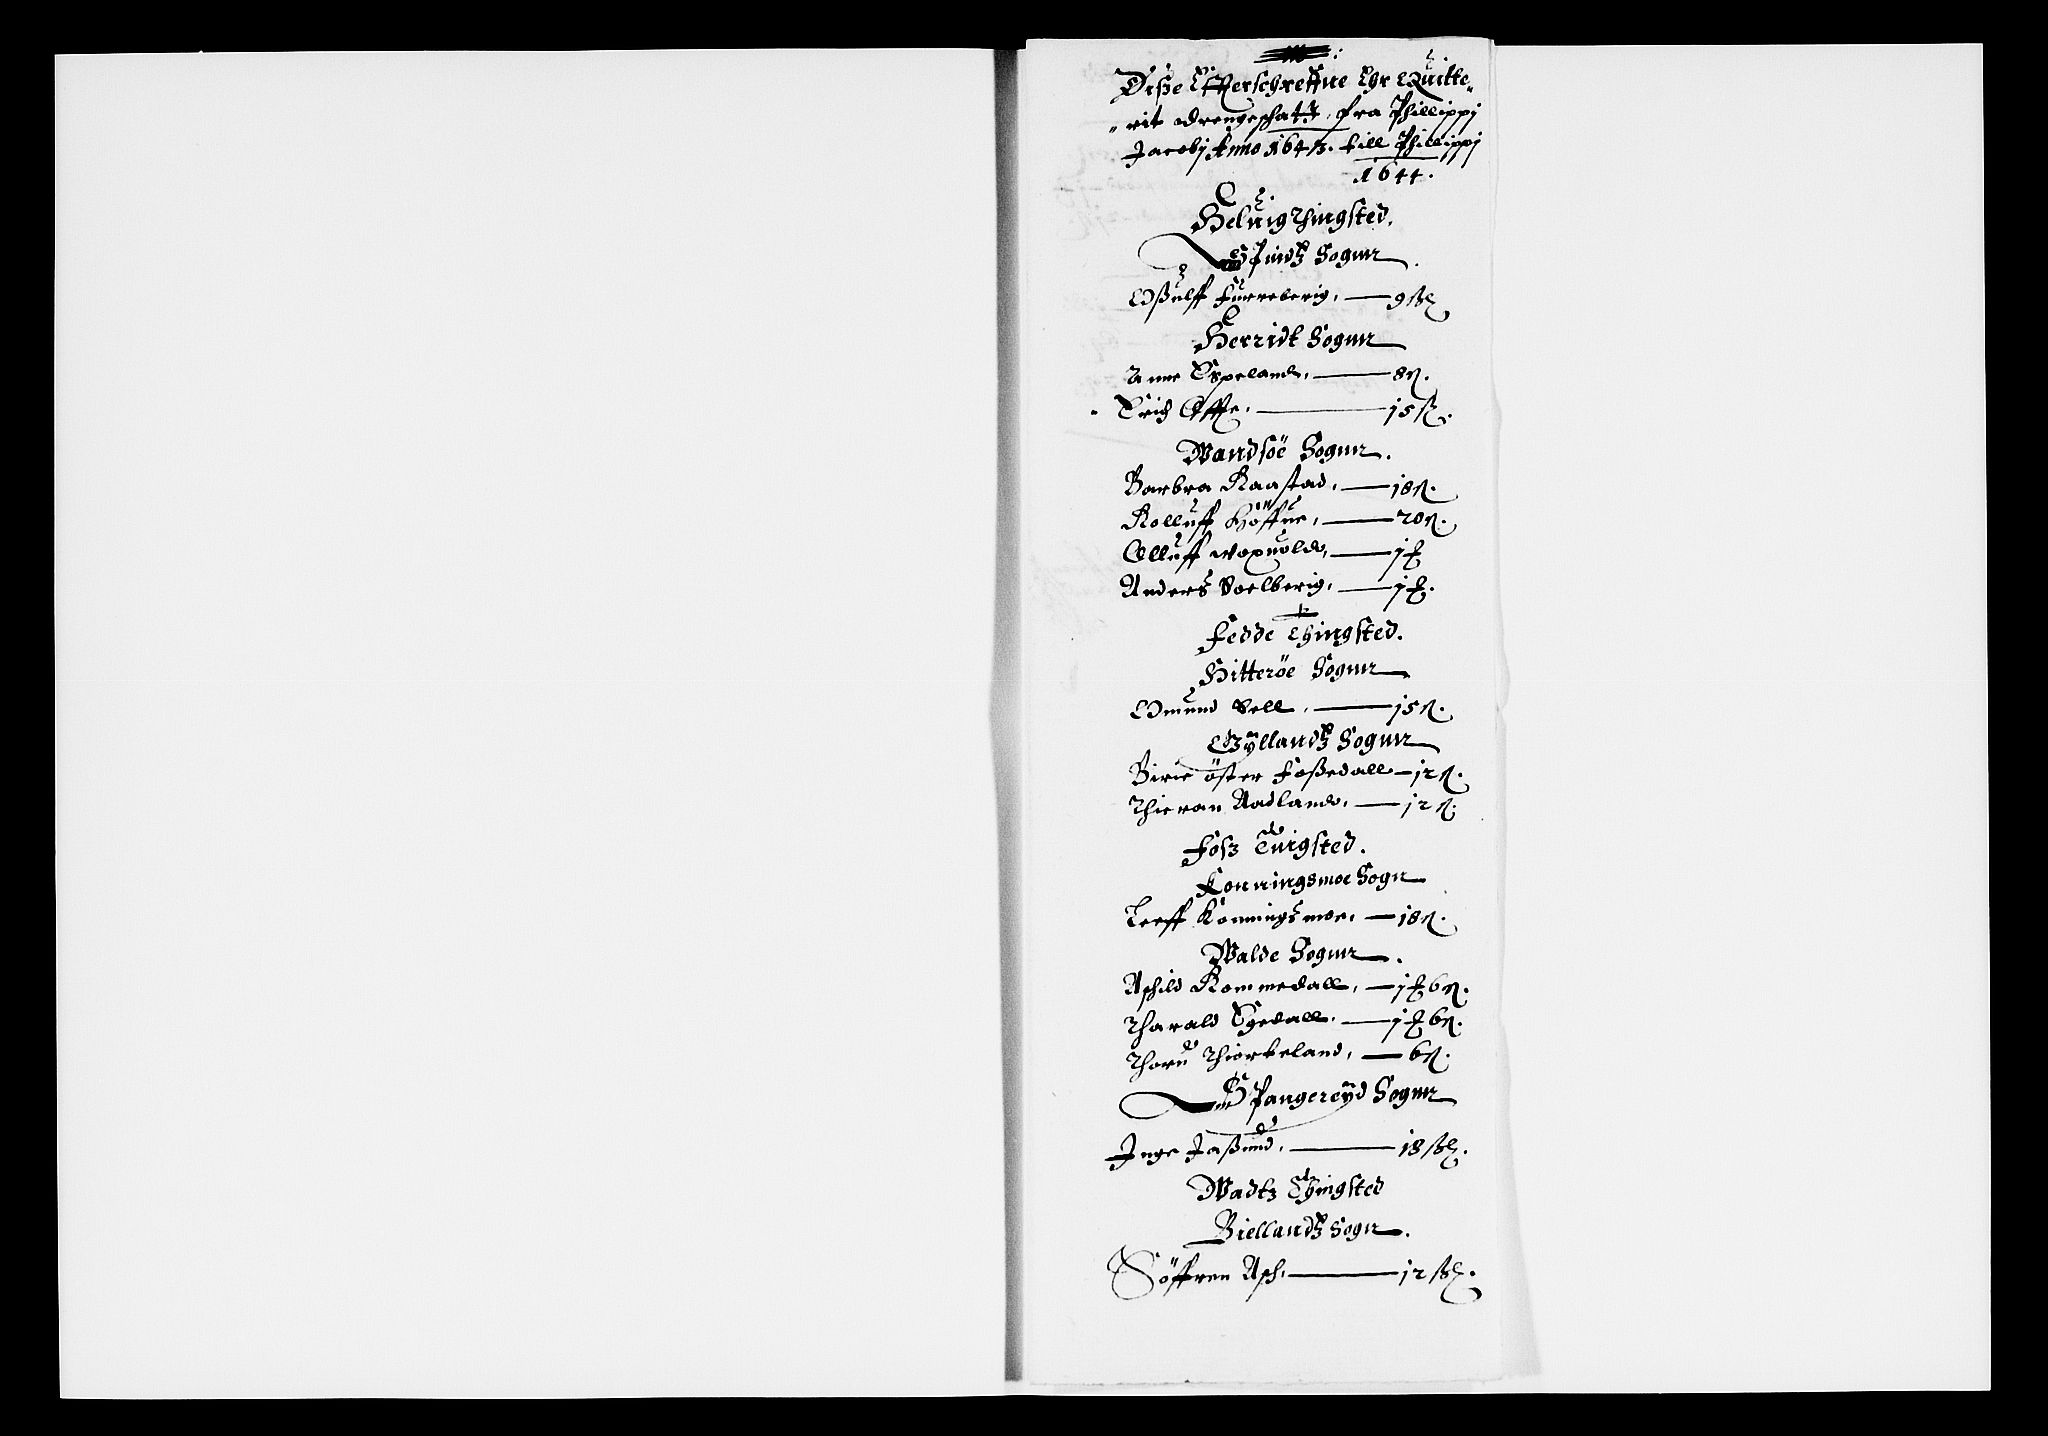 Disse Effterschreffne Ehr Quitte„
„rit drengeschatt, fra Phillippi
Jacobi Anno 1643. till Phillippi
1644.
Heluig Thingsted.
Spindtz Sognn
Ossulff Furreberig, — 9 ß
Herridt Sogn
Anne Espeland, — 8 ß.
Erich — 15 ß.
Wandsöe Sogn.
Barbra Raastad, — 18 ß.
Rolluff Höffue, — 20 ß.
Olluff — 1
Anders Soelberig, — 1
Fedde Thingsted.
Hitteröe Sogn
Omund Sell, — 15 ß.
Gyllandtz Sogn
Birie öster Fossedall — 12 ß.
Thieran Aadland, — 12 ß.
Fosz Tingsted.
Konningsmoe Sogn
Leeff Konningsmoe, — 18 ß.
Walde Sogn.
Aschild Rommedall, — 1 6 ß.
Tharald Egedall, — 1 6 ß.
Thoru Thiorkeland, — 6 ß.
Spangereyd Sogn
Inge Jaßund, — 18 ß.
Wadtz Thingsted
Biellandtz Sogn.
Söffren Ask, — 12 ß.